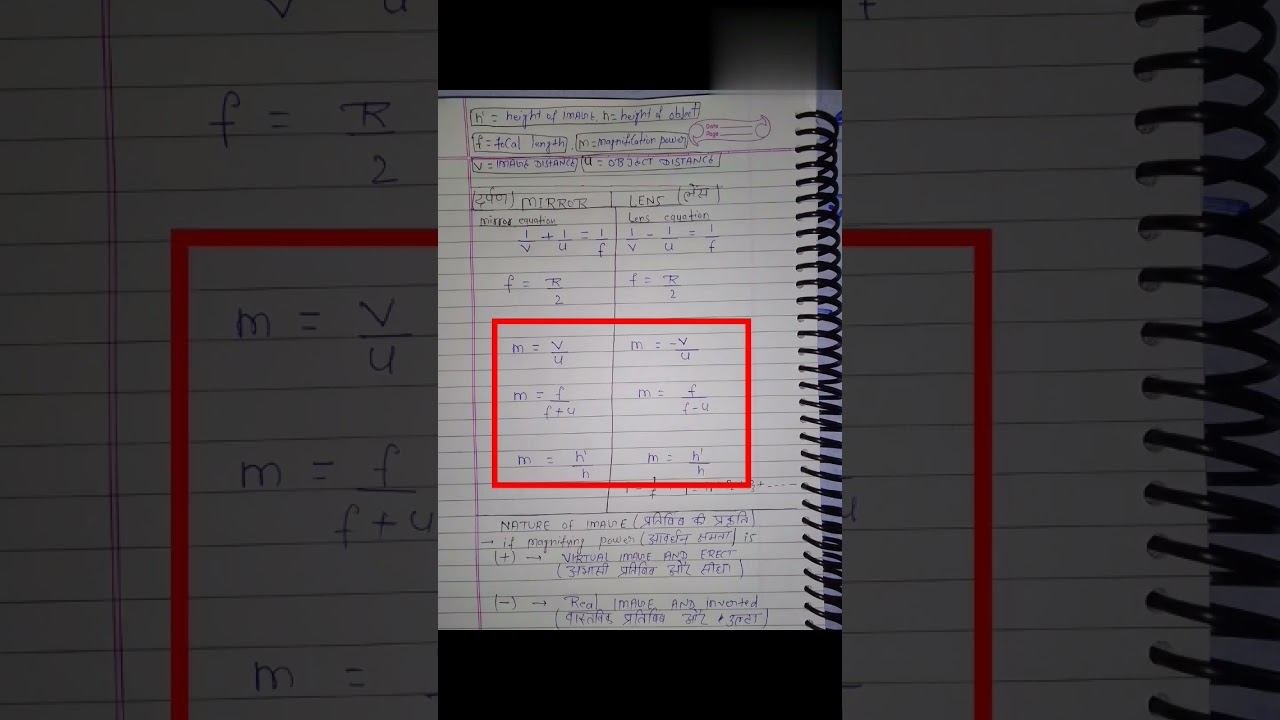 h' = height of IMAGE, h= height of object
f = focal length, m= magnification power
Date
Page
V = IMAGE DISTANCE u = OBJECT DISTANCE
(दर्पण) MIRROR LENS (लेंस)
mirror equation Lens equation
1/v + 1/u = 1/f 1/v - 1/u = 1/f
f = R/2 f = R/2
m = v/u m = -v/u
m = f/f+u m = f/f-u
m = h'/h m = h'/h
NATURE OF IMAGE (प्रतिबिंब की प्रकृति)
→ if magnifying power (आवर्धन क्षमता) is
(+) → VIRTUAL IMAGE AND ERECT
(आभासी प्रतिबिंब और सीधा)
(-) → Real IMAGE AND inverted
(वास्तविक प्रतिबिंब और उल्टा)
f = R/2
m = v/u
m = f/f+u
m =